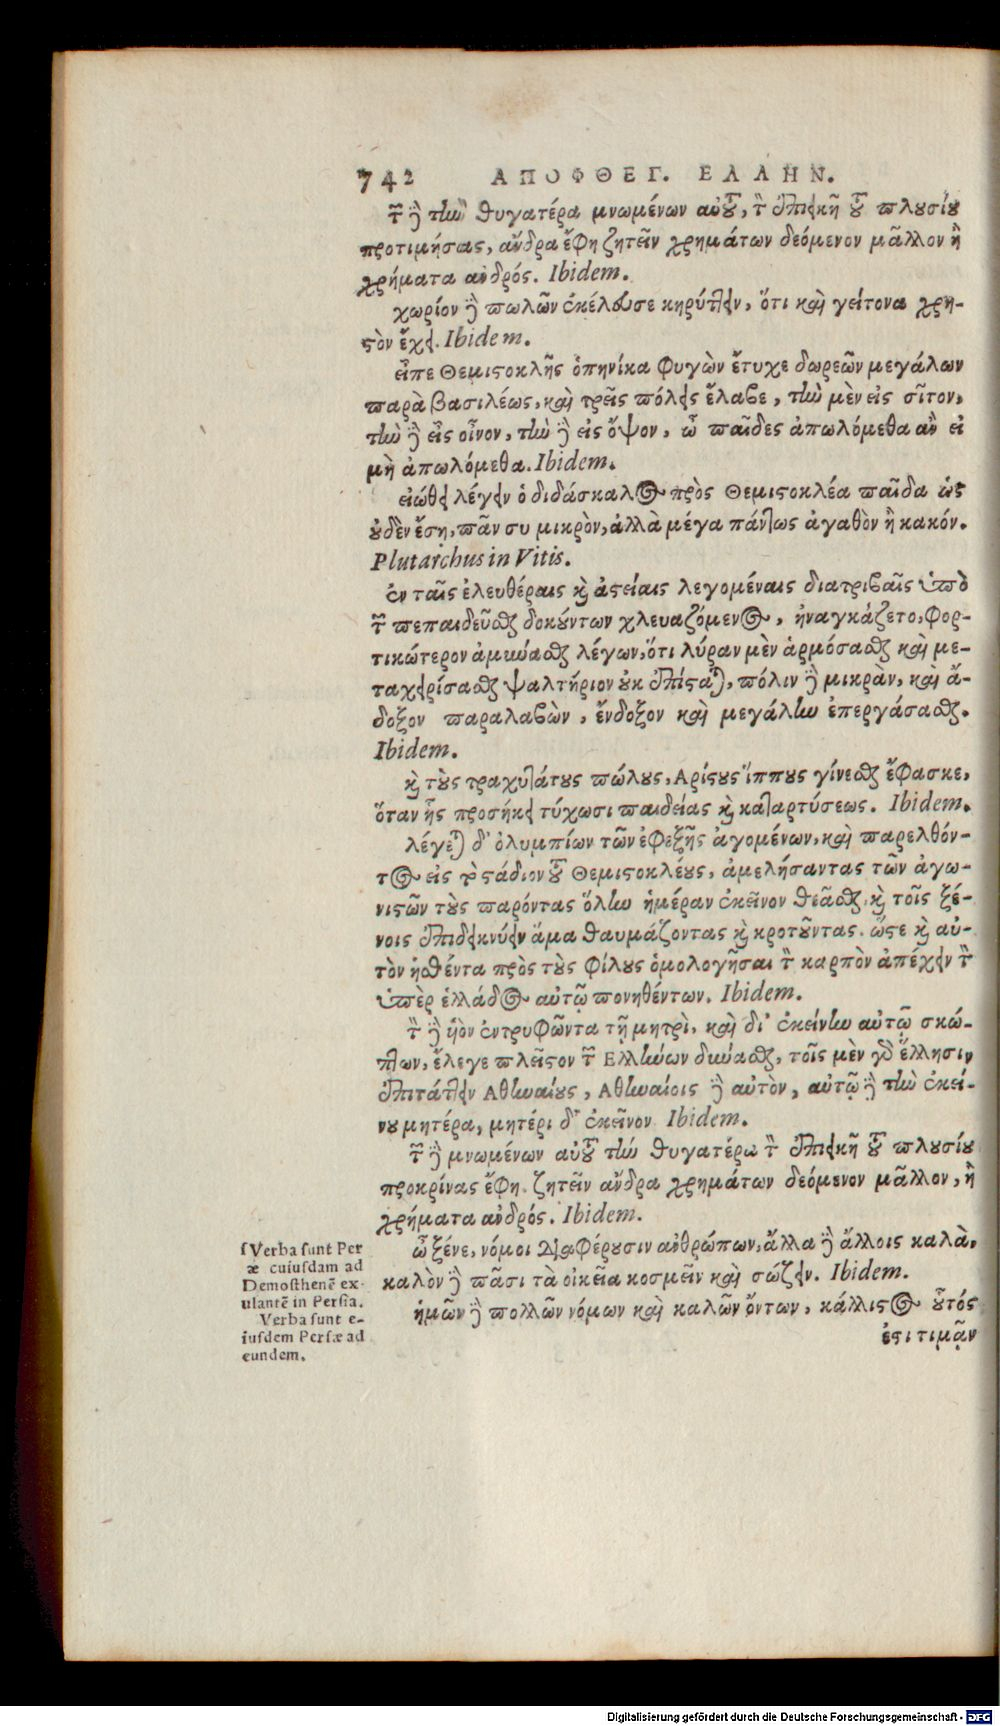 742 ΑΠΟΦΘΕΓ. ΕΛΛΗΝ.
τῶν δὲ τὴν θυγατέρα μνωμένων αὐτοῦ, τὸν ἐπιεικῆ τοῦ πλουσίου
προτιμήσας, ἄνδρα ἔφη ζητεῖν χρημάτων δεόμενον μᾶλλον ἢ
χρήματα ἀνδρός. Ibidem.
χωρίον δὲ πωλῶν ἐκέλευσε κηρύττειν, ὅτι καὶ γείτονα χρη-
στὸν ἔχει. Ibidem.
εἶπε Θεμιστοκλῆς ὁπηνίκα φυγὼν ἔτυχε δωρεῶν μεγάλων
παρὰ βασιλέως, καὶ τρεῖς πόλεις ἔλαβε, τὴν μὲν εἰς σῖτον,
τὴν δὲ εἰς οἶνον, τὴν δὲ εἰς ὄψον, ὦ παῖδες ἀπωλόμεθα ἂν εἰ
μὴ ἀπωλόμεθα. Ibidem.
εἰώθει λέγειν ὁ διδάσκαλος πρὸς Θεμιστοκλέα παῖδα ὡς
οὐδὲν ἔσῃ, παῖ συ μικρὸν, ἀλλὰ μέγα πάντως ἀγαθὸν ἢ κακόν.
Plutarchus in Vitis.
ἐν ταῖς ἐλευθέραις καὶ ἀστείαις λεγομέναις διατριβαῖς ὑπὸ
τῶν πεπαιδεῦσθαι δοκούντων χλευαζόμενος, ἠναγκάζετο, φορ-
τικώτερον ἀμύνασθαι λέγων, ὅτι λύραν μὲν ἁρμόσασθαι καὶ με-
ταχειρίσασθαι ψαλτήριον οὐκ ἐπίσταται, πόλιν δὲ μικρὰν, καὶ ἄ-
δοξον παραλαβὼν, ἔνδοξον καὶ μεγάλην ἐπεργάσασθαι.
Ibidem.
καὶ τοὺς τραχυτάτους πώλους, Ἀρίστους ἵππους γίνεσθαι ἔφασκε,
ὅταν ἧς προσήκει τύχωσι παιδείας καὶ καταρτύσεως. Ibidem.
λέγεται δ' ὀλυμπίων τῶν ἐφεξῆς ἀγομένων, καὶ παρελθόν-
τος εἰς τὸ στάδιον τοῦ Θεμιστοκλέους, ἀμελήσαντας τῶν ἀγω-
νιστῶν τοὺς παρόντας ὅλην ἡμέραν ἐκεῖνον θεᾶσθαι, καὶ τοῖς ξέ-
νοις ἐπιδεικνύειν ἅμα θαυμάζοντας καὶ κροτοῦντας. ὥστε καὶ αὐ-
τὸν ἡσθέντα πρὸς τοὺς φίλους ὁμολογῆσαι τὸν καρπὸν ἀπέχειν τῶν
ὑπὲρ ἑλλάδος αὐτῷ πονηθέντων. Ibidem.
τὸν δὲ ὑὸν ἐντρυφῶντα τῇ μητρὶ, καὶ δι' ἐκείνην αὐτῷ σκώ-
πτων, ἔλεγε πλεῖστον τῶν Ἑλλήνων δύνασθαι, τοῖς μὲν γὰρ ἕλλησιν
ἐπιτάττειν Ἀθηναίους, Ἀθηναίοις δὲ αὐτὸν, αὐτῷ δὲ τὴν ἐκεί-
νου μητέρα, μητέρι δ' ἐκεῖνον Ibidem.
τῶν δὲ μνωμένων αὐτοῦ τὴν θυγατέρα τὸν ἐπιεικῆ τοῦ πλουσίου
προκρίνας ἔφη. ζητεῖν ἄνδρα χρημάτων δεόμενον μᾶλλον, ἢ
χρήματα ἀνδρός. Ibidem.
ὦ ξένε, νόμοι διαφέρουσιν ἀνθρώπων, ἄλλα δὲ ἄλλοις καλὰ,
καλὸν δὲ πᾶσι τὰ οἰκεῖα κοσμεῖν καὶ σώζειν. Ibidem.
ἡμῶν δὲ πολλῶν νόμων καὶ καλῶν ὄντων, κάλλιστος οὗτός
ἐστι τιμᾷν
ſVerba ſunt Per
æ cuiuſdam ad
Demoſthenē ex-
ulantē in Perſia.
Verba ſunt e-
iuſdem Perſæ ad
eundem.
Digitalisierung gefördert durch die Deutsche Forschungsgemeinschaft - DFG